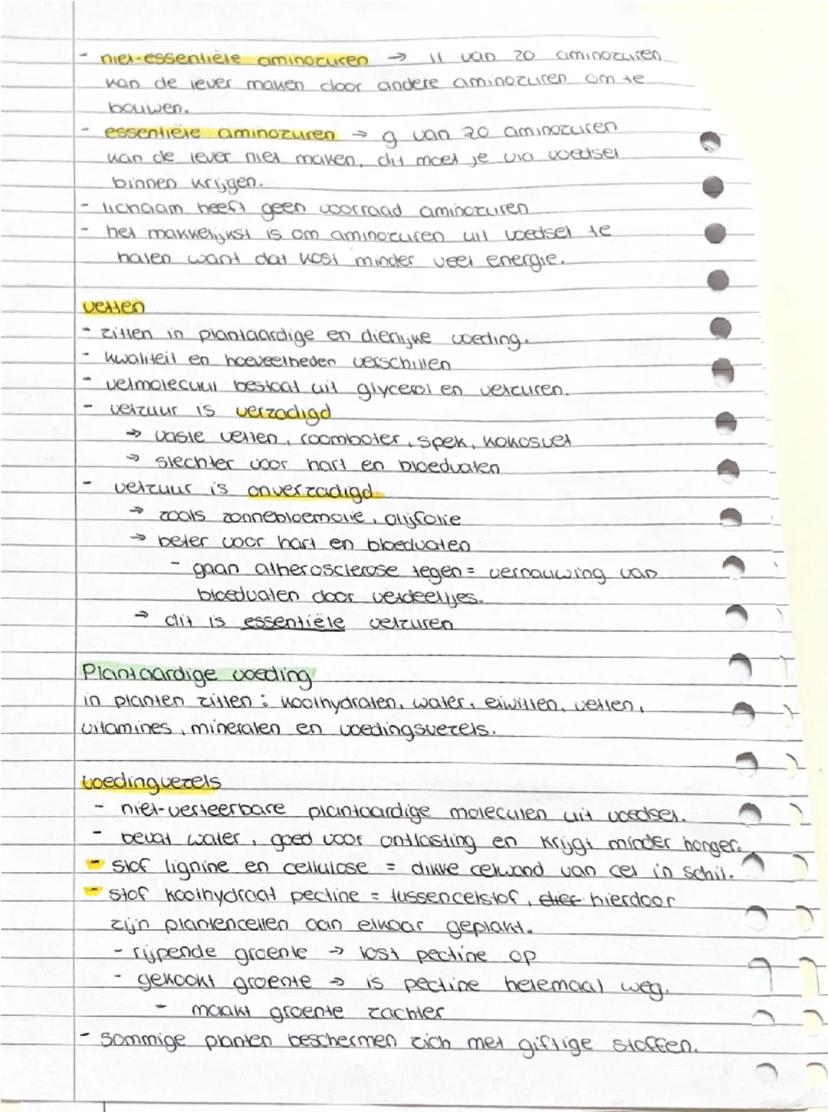 - niet-essentiële aminozuren → 11 van 20 aminozuren
kan de lever maken door andere aminozuren om te
bouwen.
- essentiële aminozuren → 9 van 20 aminozuren
kan de lever niet maken, dit moet je via voedsel
binnen krijgen.
- lichaam heeft geen voorraad aminozuren
- het makkelijkst is om aminozuren uit voedsel te
halen want dat kost minder veel energie.
vetten
- zitten in plantaardige en dierlijke voeding.
- kwaliteit en hoeveelheden verschillen
- vetmolecuul bestaat uit glycerol en vetzuren.
- vetzuur is verzadigd
→ vaste vetten, roomboter, spek, kokosvet
→ slechter voor hart en bloedvaten
- vetzuur is onverzadigd
→ zoals zonnebloemolie, olijfolie
→ beter voor hart en bloedvaten
- gaan atherosclerose tegen = vernauwing van
bloedvaten door vetdeeltjes.
→ dit is essentiële vetzuren
Plantaardige voeding
in planten zitten: koolhydraten, water, eiwitten, vetten,
vitamines, mineralen en voedingsvezels.
voedingvezels
- niet-verteerbare plantaardige moleculen uit voedsel.
- bevat water, goed voor ontlasting en krijgt minder honger.
- stof lignine en cellulose = dikke celwand van cel in schil.
- stof koolhydraat pectine = tussencelstof, hierdoor
zijn plantencellen aan elkaar geplakt.
- rijpende groente → lost pectine op
- gekookt groente → is pectine helemaal weg.
- maakt groente zachter
- sommige planten beschermen zich met giftige stoffen.